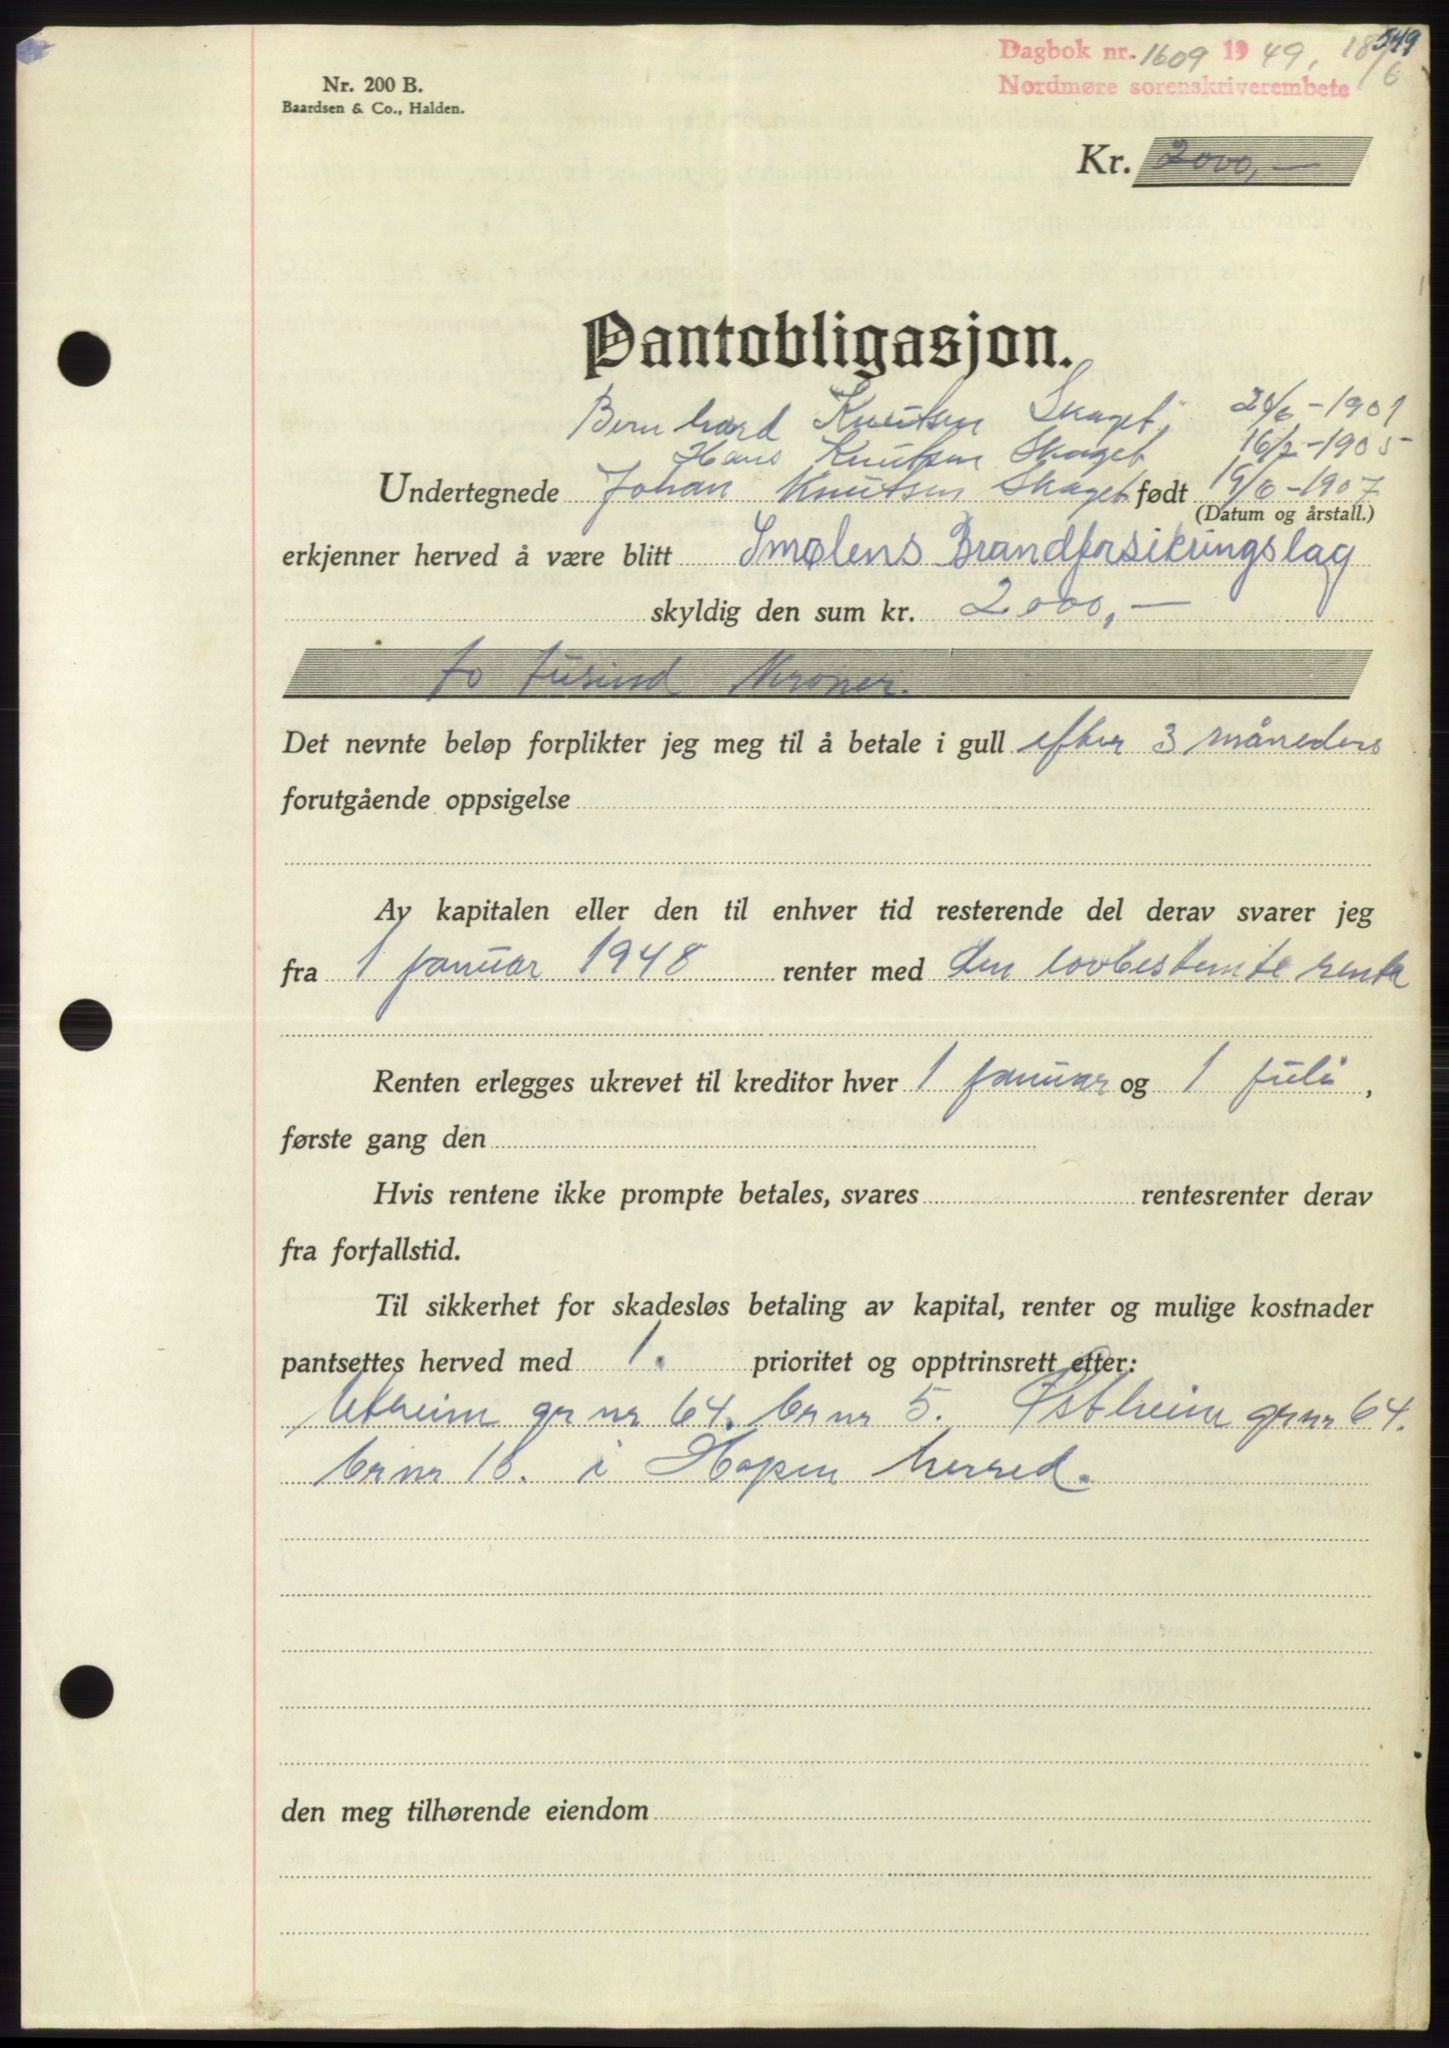 549
Dagbok nr. 1609 1949, 18/6
Nordmøre sorenskriverembete
Nr. 200 B.
Baardsen & Co., Halden.
Kr. 2000,—
Pantobligasjon.
Bernhard Knutsen Skaget, 20/6-1901
Hans Knutsen Skaget 16/2-1905
Undertegnede Johan Knutsen Skaget født 19/6-1907
(Datum og årstall.)
erkjenner herved å være blitt Smølens Brandforsikringslag
skyldig den sum kr. 2000,—
to tusind Kroner.
Det nevnte beløp forplikter jeg meg til å betale i gull efter 3 måneders
forutgående oppsigelse
Av kapitalen eller den til enhver tid resterende del derav svarer jeg
fra 1 januar 1948 renter med den lovbestemte renta
Renten erlegges ukrevet til kreditor hver 1 januar og 1 juli,
første gang den
Hvis rentene ikke prompte betales, svares rentesrenter derav
fra forfallstid.
Til sikkerhet for skadesløs betaling av kapital, renter og mulige kostnader
pantsettes herved med 1. prioritet og opptrinsrett etter:
Utheim gr nr 64. br nr 5. Østheim gr nr 64.
br nr 16. i Hopen herred.
den meg tilhørende eiendom